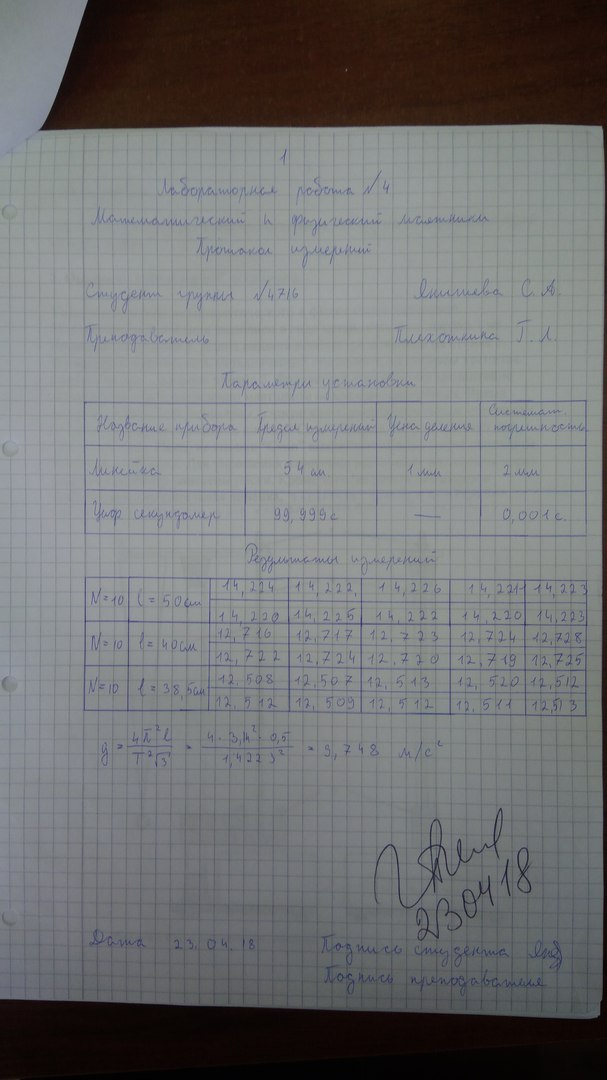 1
Лабораторная работа №4
Математический и физический маятники
Протокол измерений
Студент группы №4716 Якишева С. А.
Преподаватель Плехоткина Г. Л.
Параметры установки
Название прибора Предел измерений Цена деления Системат. погрешность
Линейка 54 см 1 мм 2 мм
Циф секундомер 99,999 с — 0,001 с.
Результаты измерений
N=10 l = 50 см 14,224 14,222 14,226 14,221 14,223
14,220 14,225 14,222 14,220 14,223
N=10 l = 40 см 12,716 12,717 12,723 12,724 12,728
12,722 12,724 12,720 12,719 12,725
N=10 l = 38,5 см 12,508 12,507 12,513 12,520 12,512
12,512 12,509 12,512 12,511 12,513
g = 4π²l / T² = 4 · 3,14² · 0,5 / 1,4223² = 9,748 м/с²
230418
Дата 23.04.18 Подпись студента
Подпись преподавателя